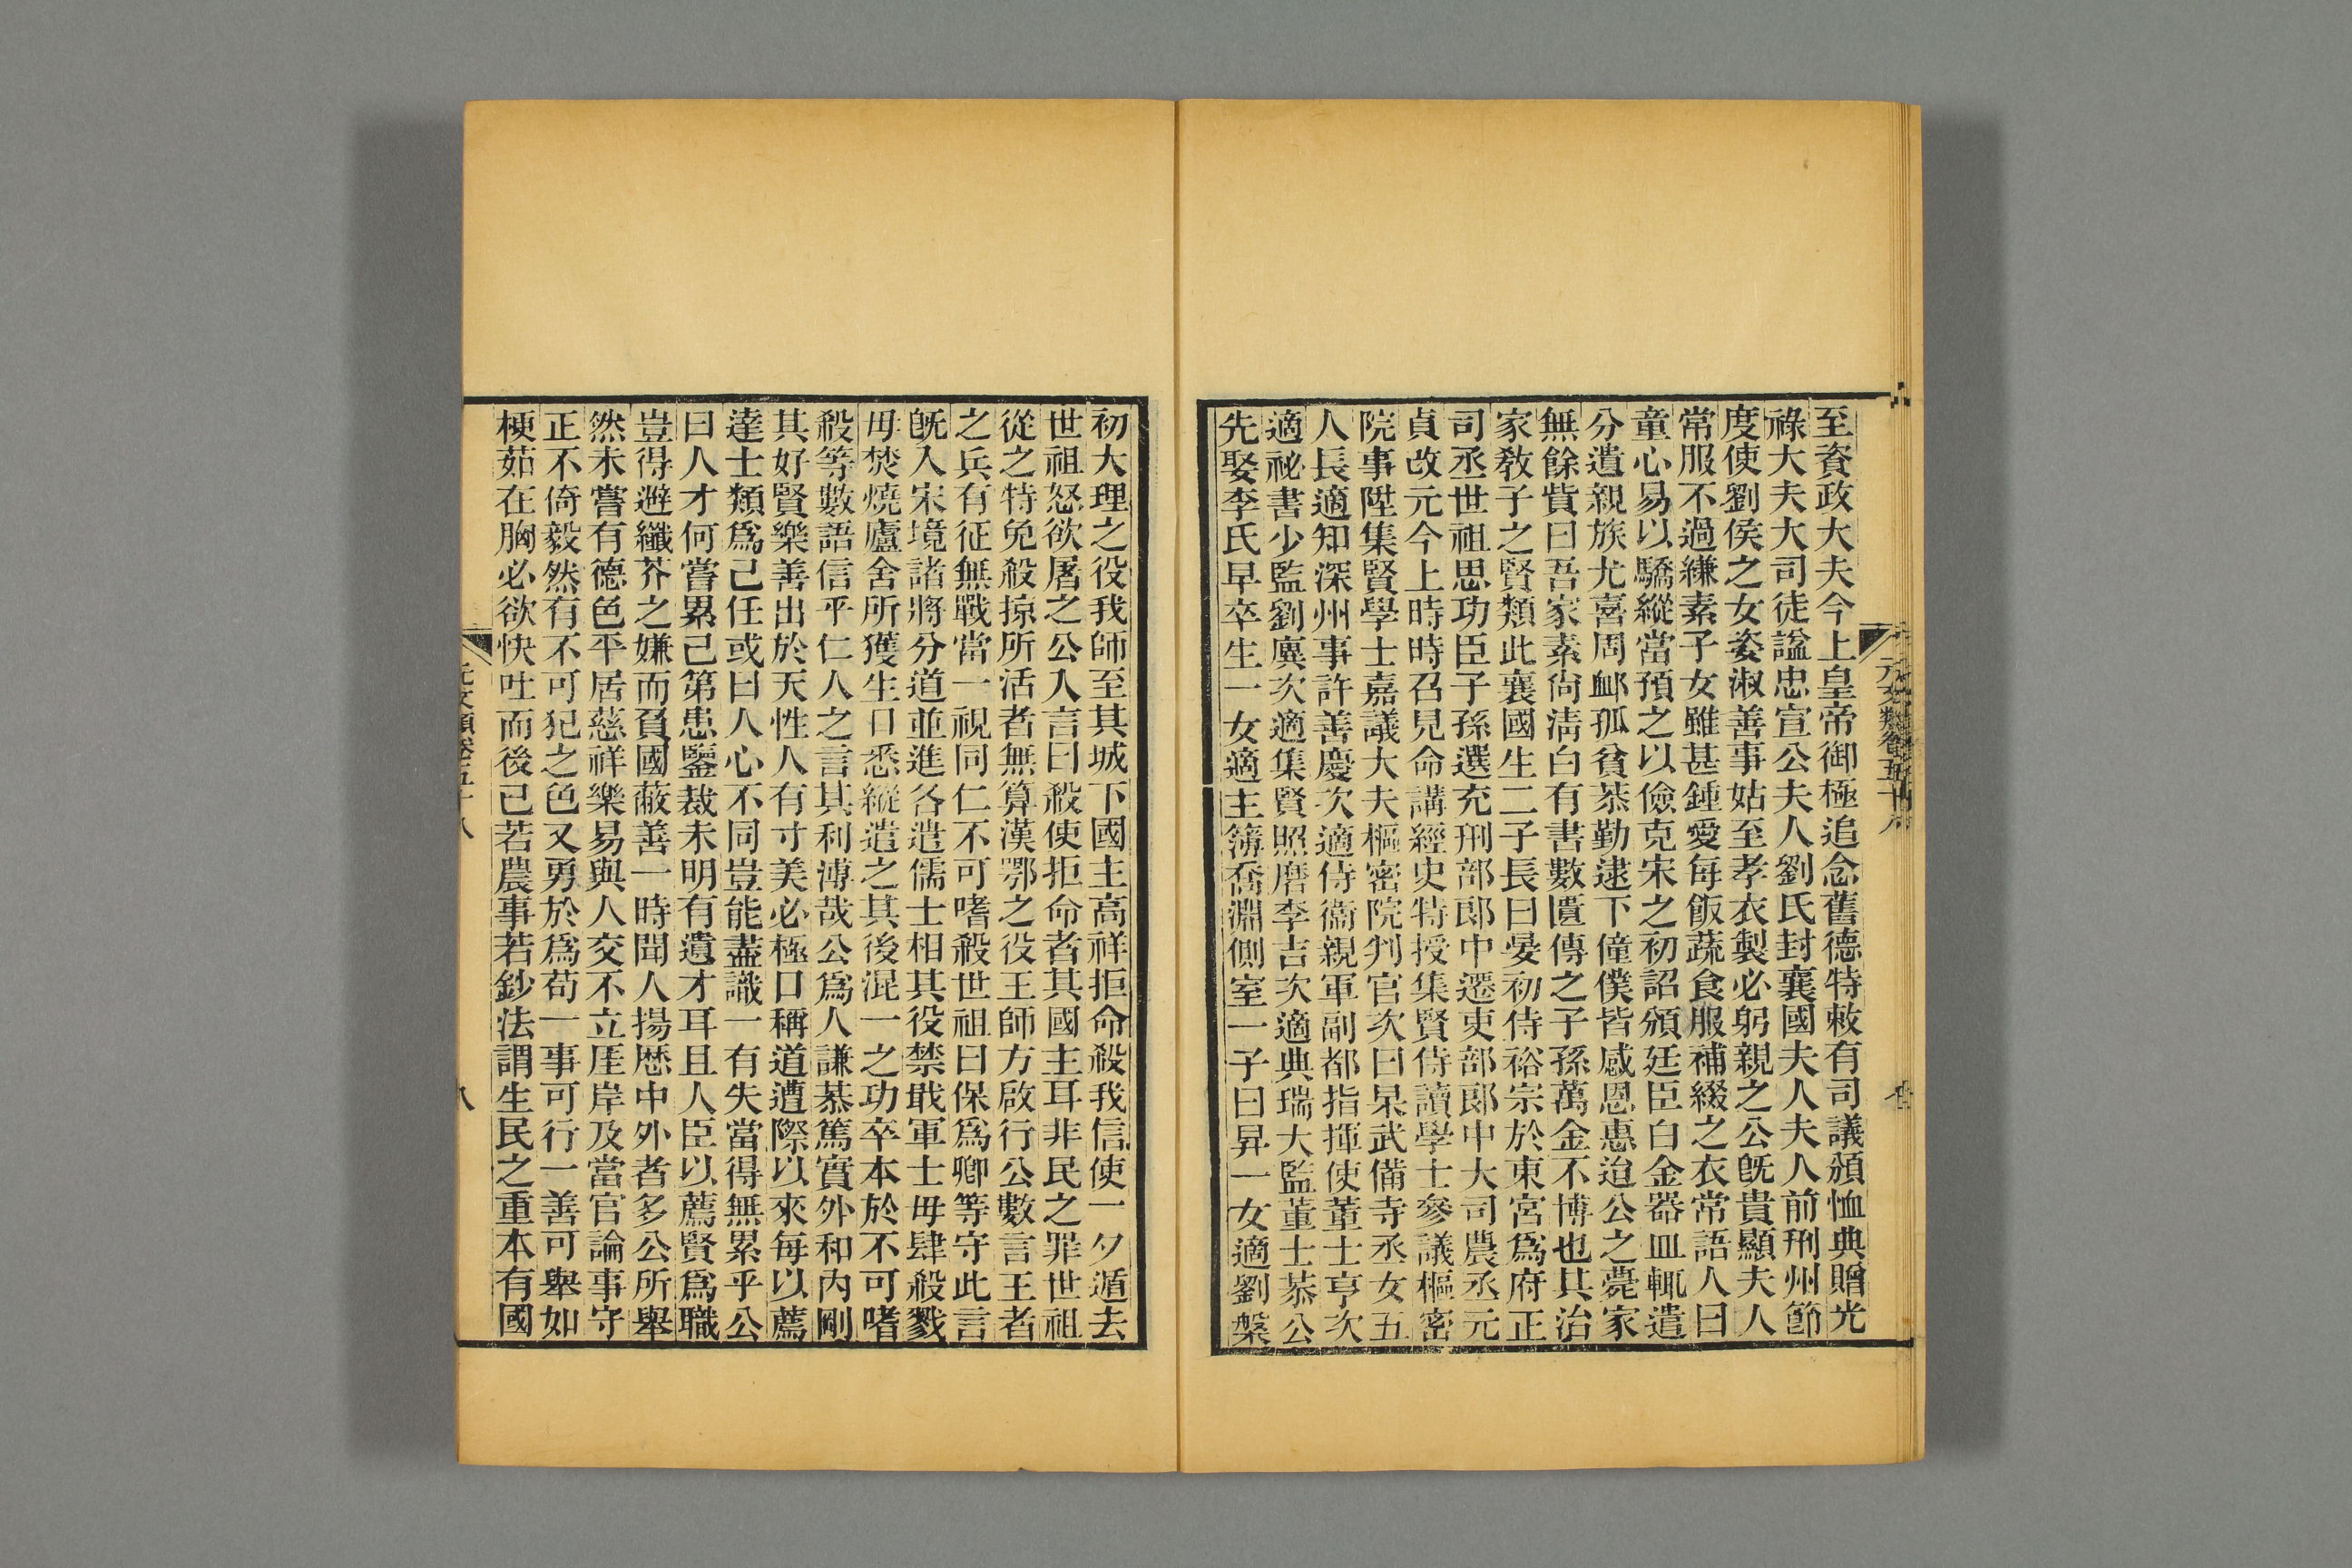 至資政大夫今上皇帝御極追念舊德特敕有司議頒恤典贈光
祿大夫大司徒諡忠宣公夫人劉氏封襄國夫人夫人前刑州節
度使劉侯之女姿淑善事姑至孝衣製必躬親之公旣貴顯夫人
常服不過縑素子女雖甚鍾愛每飯蔬食服補綴之衣常語人曰
童心易以驕縱當預之以儉克宋之初詔頒廷臣白金器皿輒遣
分遺親族尤喜周䘏孤貧恭勤逮下僮僕皆感恩惠迨公之薨家
無餘貲曰吾家素尙淸白有書數匱傳之子孫萬金不博也其治
家敎子之賢類此襄國生二子長曰晏初侍裕宗於東宮爲府正
司丞世祖思功臣子孫選充刑部郎中遷吏部郎中大司農丞元
貞改元今上時時召見命講經史特授集賢侍讀學士參議樞密
院事陞集賢學士嘉議大夫樞密院判官次曰杲武備寺丞女五
人長適知深州事許善慶次適侍衞親軍副都指揮使董士亨次
適祕書少監劉廙次適集賢照磨李吉次適典瑞大監董士恭公
先娶李氏早卒生一女適主簿喬淵側室一子曰昇一女適劉槃
元文類卷五十八
初大理之役我師至其城下國主高祥拒命殺我信使一夕遁去
世祖怒欲屠之公入言曰殺使拒命者其國主耳非民之罪世祖
從之特免殺掠所活者無算漢鄂之役王師方啟行公數言王者
之兵有征無戰當一視同仁不可嗜殺世祖曰保爲卿等守此言
旣入宋境諸將分道並進各遣儒士相其役禁戢軍士毋肆殺戮
毋焚燒廬舍所獲生口悉縱遣之其後混一之功卒本於不可嗜
殺等數語信乎仁人之言其利溥哉公爲人謙恭篤實外和內剛
其好賢樂善出於天性人有寸美必極口稱道遭際以來每以薦
達士類爲己任或曰人心不同豈能盡識一有失當得無累乎公
曰人才何嘗累己第患鑒裁未明有遺才耳且人臣以薦賢爲職
豈得避纖芥之嫌而負國蔽善一時聞人揚歷中外者多公所舉
然未嘗有德色平居慈祥樂易與人交不立厓岸及當官論事守
正不倚毅然有不可犯之色又勇於爲苟一事可行一善可舉如
梗茹在胸必欲快吐而後已若農事若鈔法謂生民之重本有國
元文類卷五十八
八